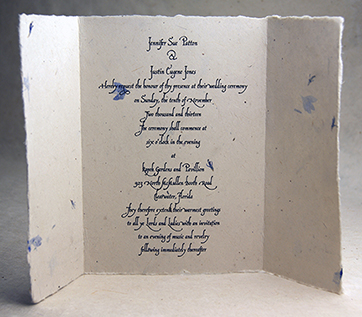 Jennifer Sue Patton
@
Justin Eugene Jones
Hereby request the honour of thy presence at their wedding ceremony
on Sunday, the tenth of November
Two thousand and thirteen
The ceremony shall commence at
six o'clock in the evening
at
Kapok Gardens and Pavillion
923 North McMullen Booth Road
Clearwater, Florida
They therefore extend their warmest greetings
to all ye Lords and Ladies with an invitation
to an evening of music and revelry
following immediately thereafter